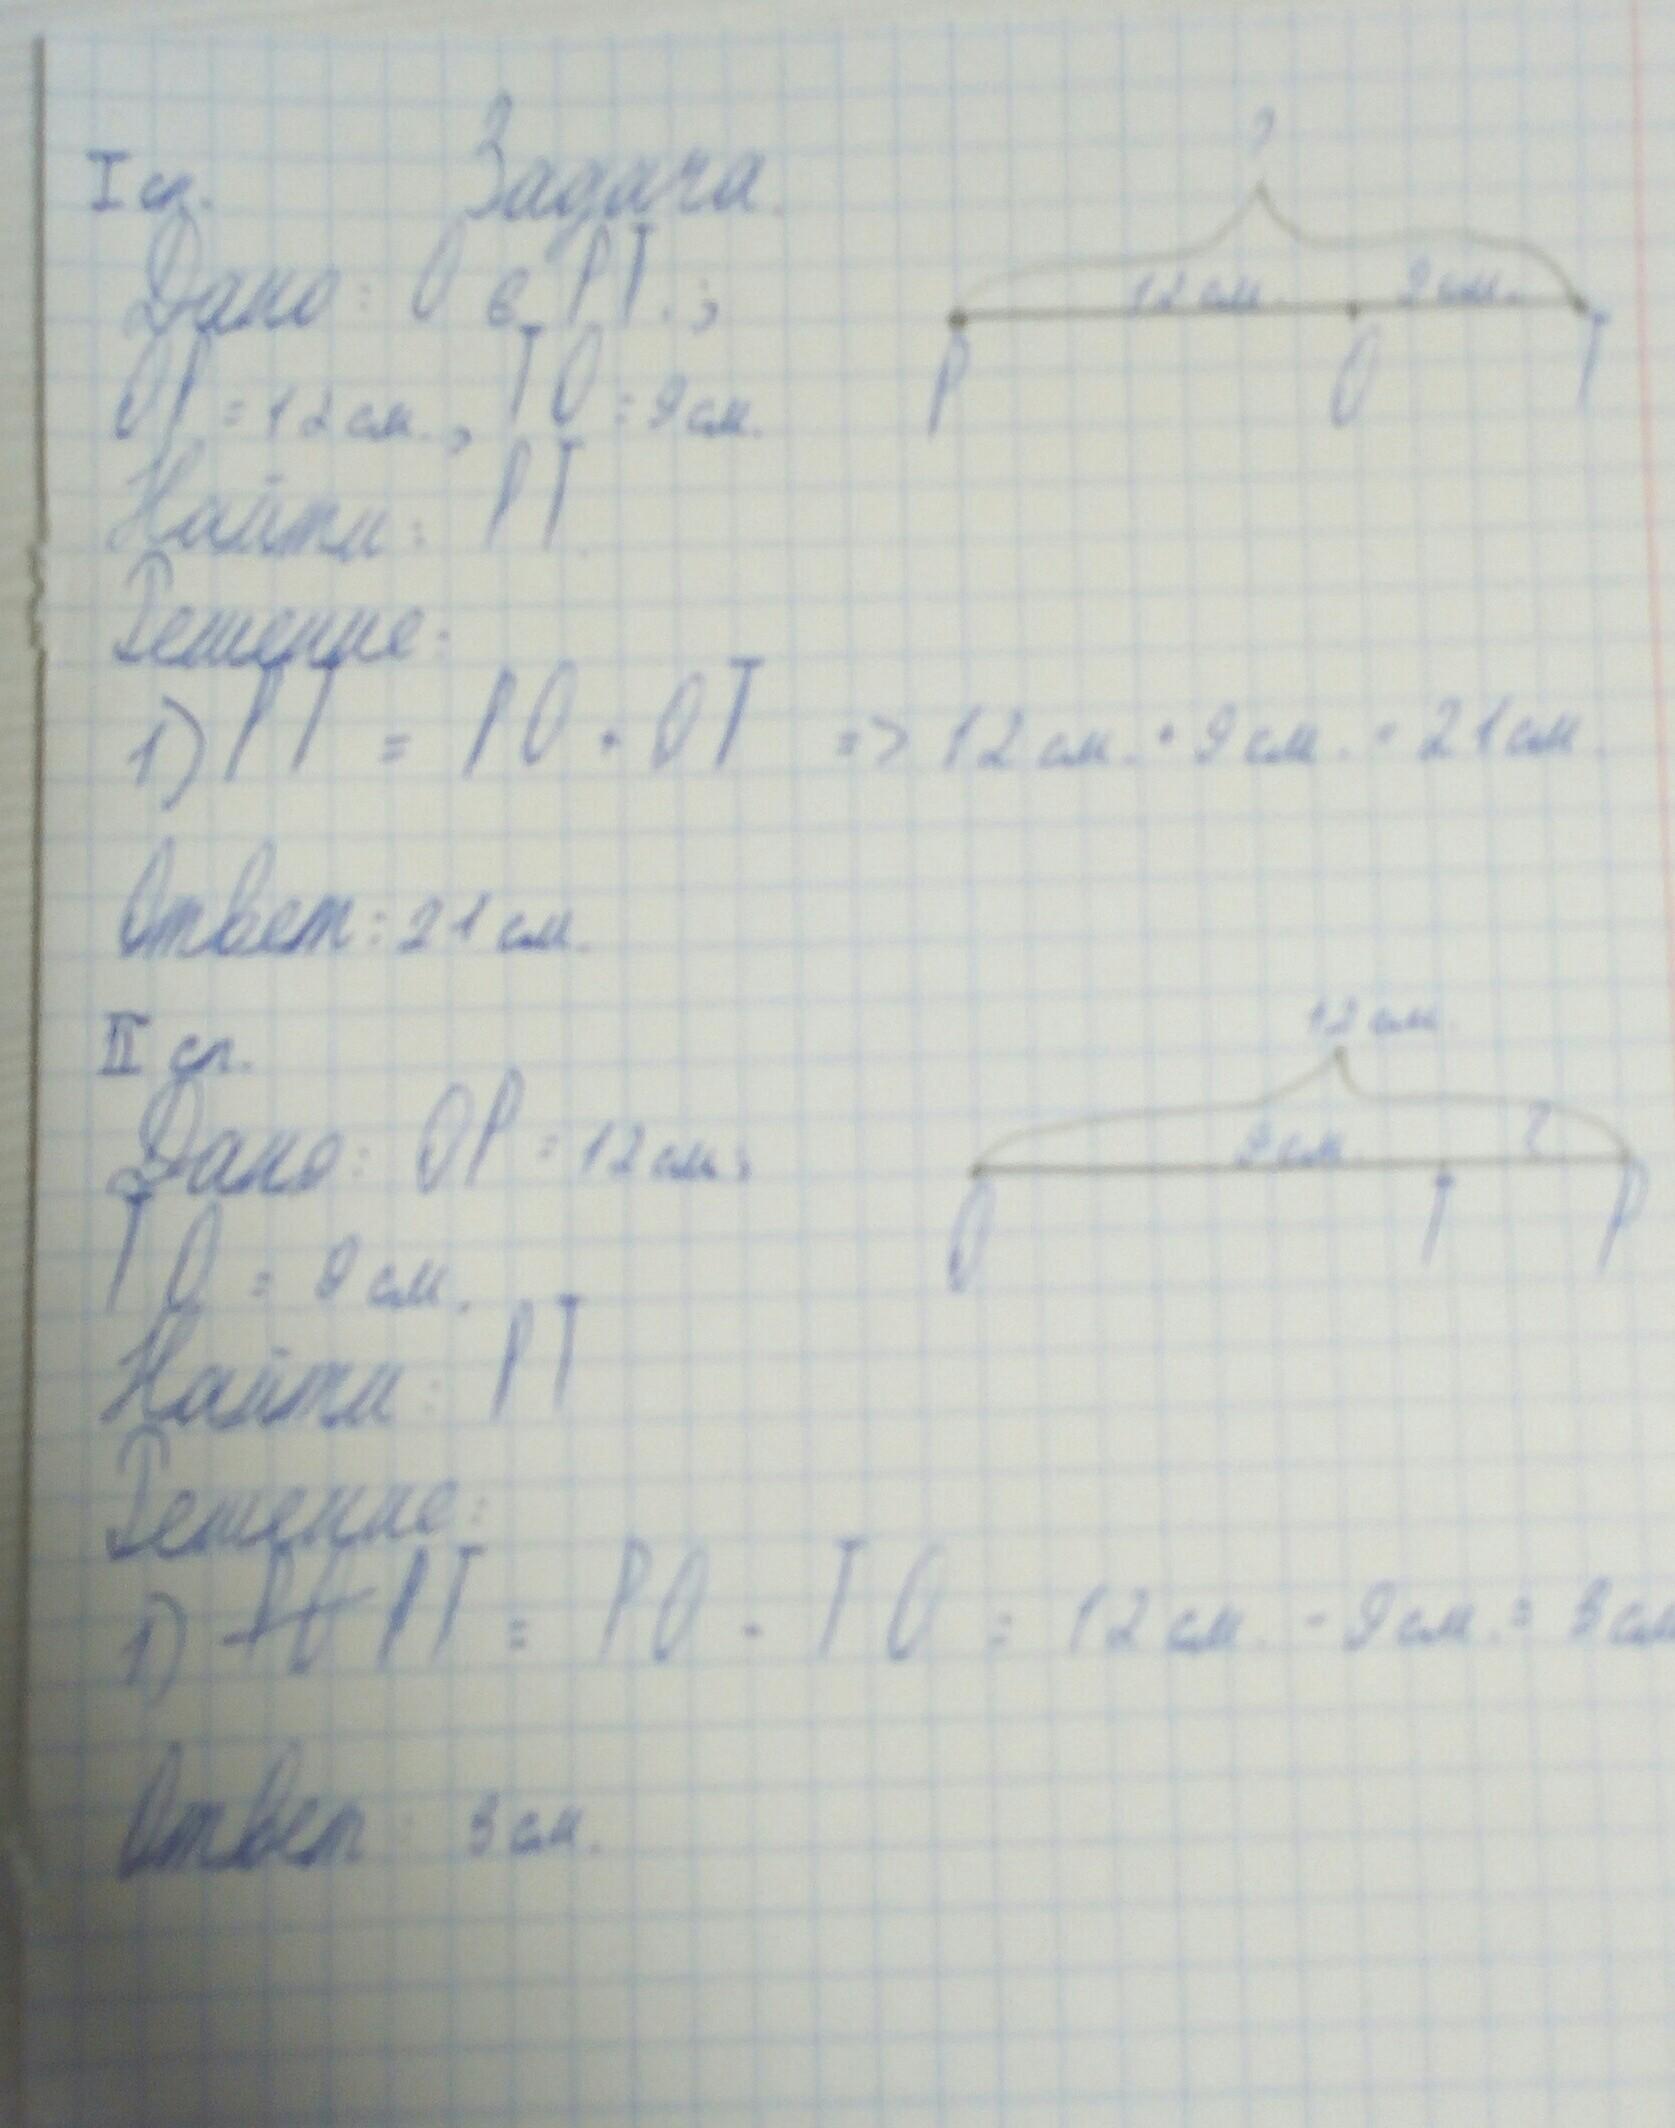 I сл. Задача.
?
Дано: O ∈ PT.;
12 см. 9 см.
P O T
OP = 12 см., TO = 9 см.
Найти: PT.
Решение:
1) PT = PO + OT => 12 см. + 9 см. = 21 см.
Ответ: 21 см.
II сл.
12 см.
Дано: OP = 12 см;
9 см. ?
O T P
TO = 9 см.
Найти: PT
Решение:
1) PO PT = PO - TO = 12 см. - 9 см. = 3 см
Ответ: 3 см.